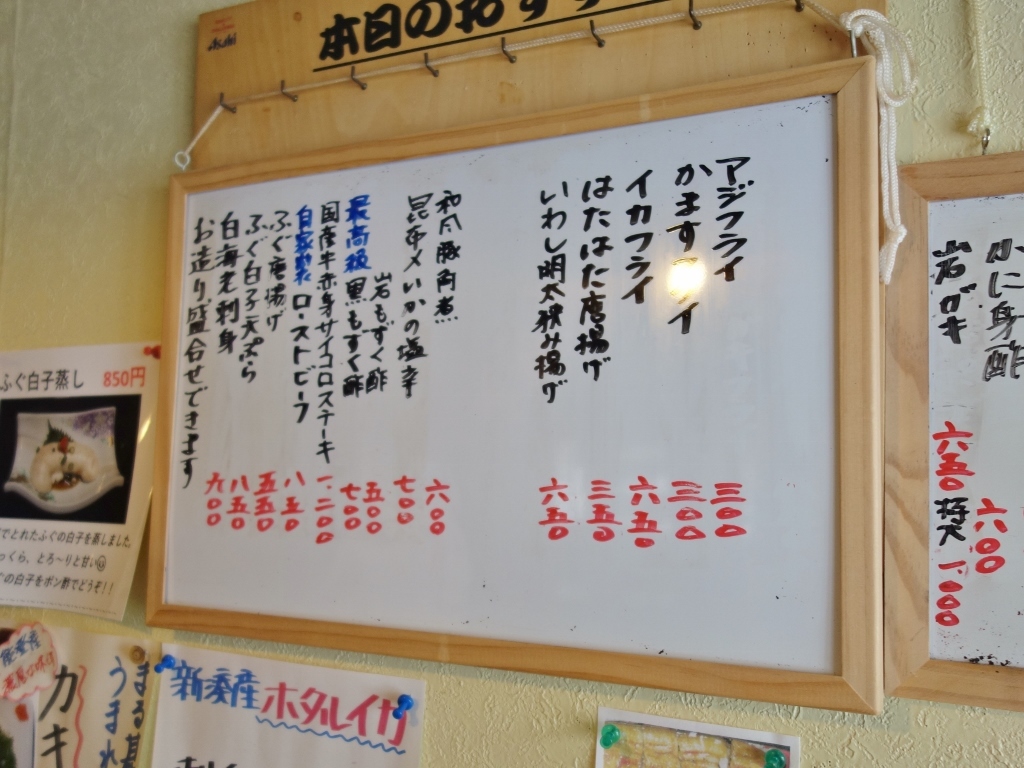 Asahi
本日のおすす
アジフライ 三〇〇
かますフライ 三〇〇
イカフライ 六五〇
はたはた唐揚げ 三五〇
いわし明太挟み揚げ 六五〇
和風豚角煮 六〇〇
昆布〆いかの塩辛 七〇〇
岩もずく酢 五〇〇
最高級黒もずく酢 七〇〇
国産牛赤身サイコロステーキ 一、二〇〇
自家製ローストビーフ 八五〇
ふぐ唐揚げ 五五〇
ふぐ白子天ぷら 八五〇
白海老刺身 九〇〇
お造り盛合せできます
かに身酢 六〇〇
岩ガキ 六五〇 特大 一、〇〇〇
ふぐ白子蒸し 850円
でとれたふぐの白子を蒸しました
っくら、とろ～りと甘い
ぐの白子をポン酢でどうぞ!!
カキ
うまれ
新湊産
ホタルイカ